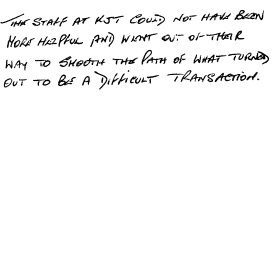 THE STAFF AT KJT COULD NOT HAVE BEEN
MORE HELPFUL AND WENT OUT OF THEIR
WAY TO SMOOTH THE PATH OF WHAT TURNED
OUT TO BE A DIFFICULT TRANSACTION.